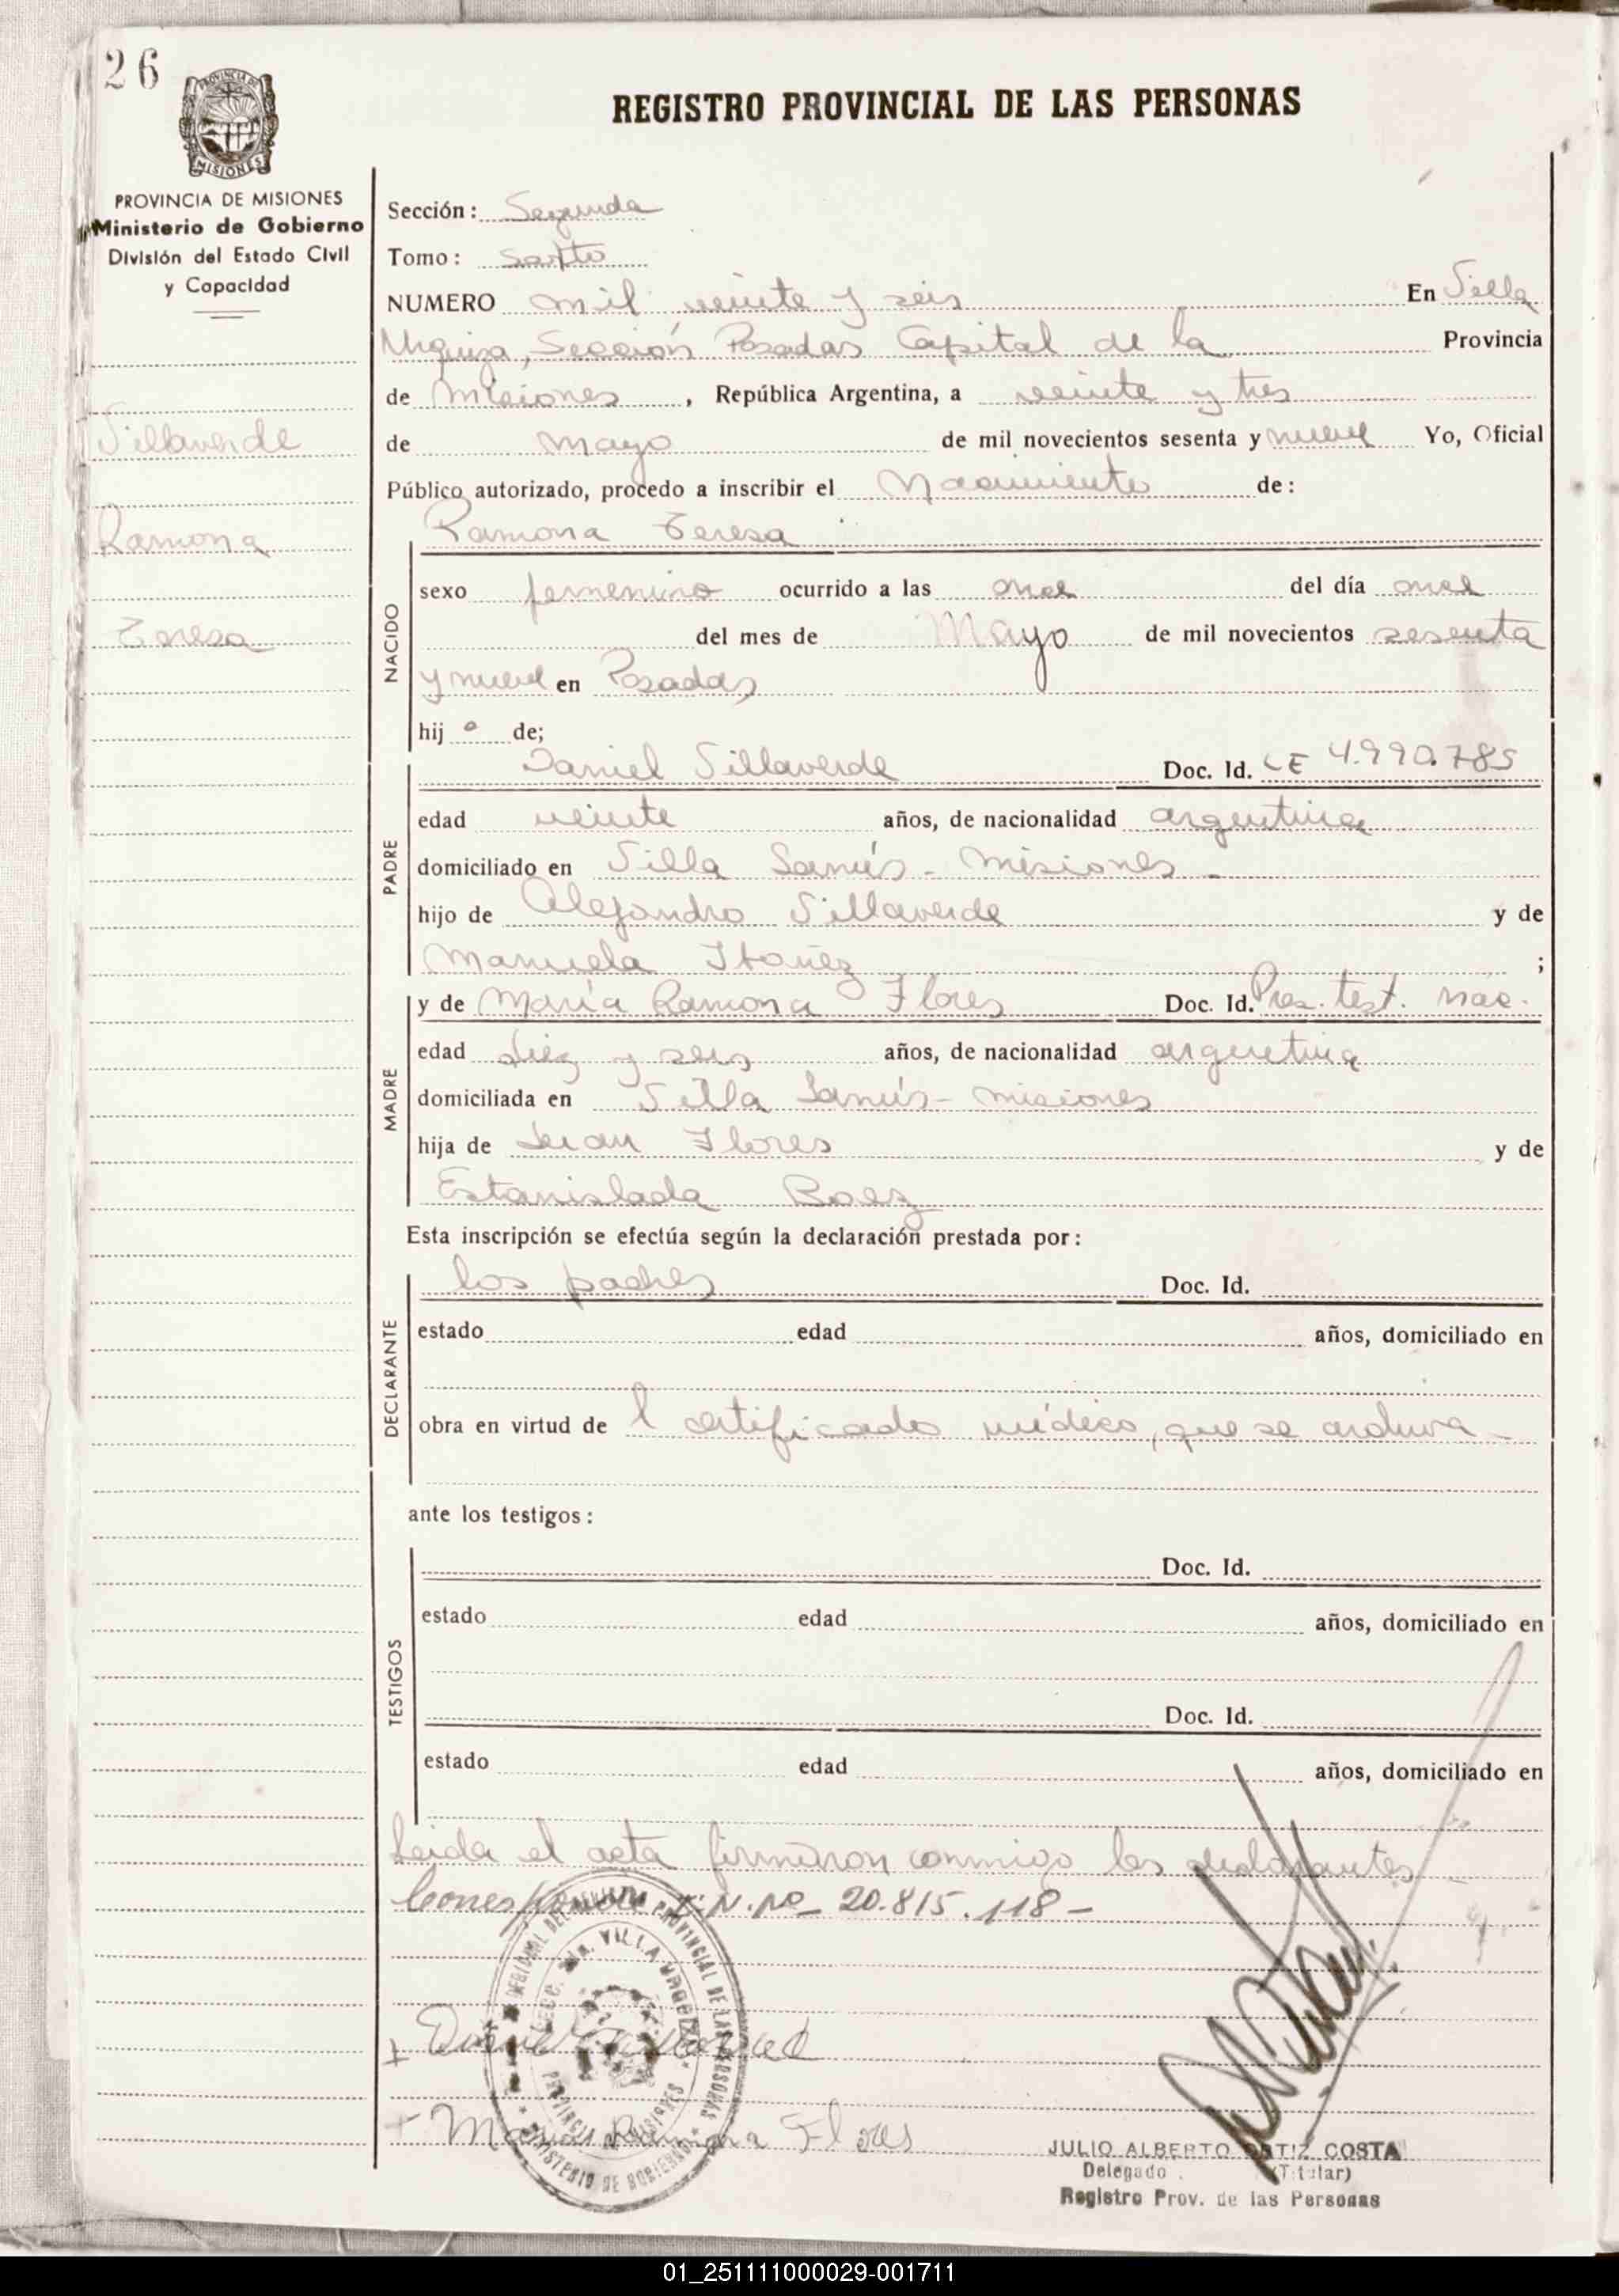 26
PROVINCIA DE MISIONES
PROVINCIA DE MISIONES
Ministerio de Gobierno
División del Estado Civil
y Capacidad
Villaverde
Ramona
Teresa
REGISTRO PROVINCIAL DE LAS PERSONAS
Sección: Segunda
Tomo: Sexto
NUMERO mil veinte y seis En Villa
Urquiza, Sección Posadas Capital de la Provincia
de Misiones, República Argentina, a veinte y tres
de mayo de mil novecientos sesenta y nueve Yo, Oficial
Público autorizado, procedo a inscribir el Nacimiento de:
Ramona Teresa
NACIDO
sexo femenino ocurrido a las once del día once
del mes de Mayo de mil novecientos sesenta
y nueve en Posadas
hij a de;
PADRE
Daniel Villaverde Doc. Id. LE 4.990.785
edad veinte años, de nacionalidad argentina
domiciliado en Villa Lanús - Misiones -
hijo de Alejandro Villaverde y de
Manuela Ibañez ;
MADRE
y de María Ramona Flores Doc. Id. Pres. test. nac.
edad diez y seis años, de nacionalidad argentina
domiciliada en Villa Lanús - Misiones
hija de Juan Flores y de
Estanislada Baez
Esta inscripción se efectúa según la declaración prestada por:
DECLARANTE
los padres Doc. Id.
estado edad años, domiciliado en
obra en virtud de l certificado médico, que se archiva -
ante los testigos:
TESTIGOS
Doc. Id.
estado edad años, domiciliado en
Doc. Id.
estado edad años, domiciliado en
Leida el acta firmaron conmigo los declarantes
Corresponde I.N.Nº- 20.815.118-
María Ramona Flores
JULIO ALBERTO ORTIZ COSTA
Delegado (Titular)
Registro Prov. de las Personas
01_251111000029-001711